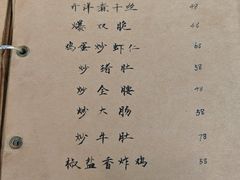 开洋煮干丝 48
爆双脆 48
鸡蛋炒虾仁 68
炒猪肚 58
炒全腰 48
炒大肠 58
炒牛肚 78
椒盐香炸鸡 58